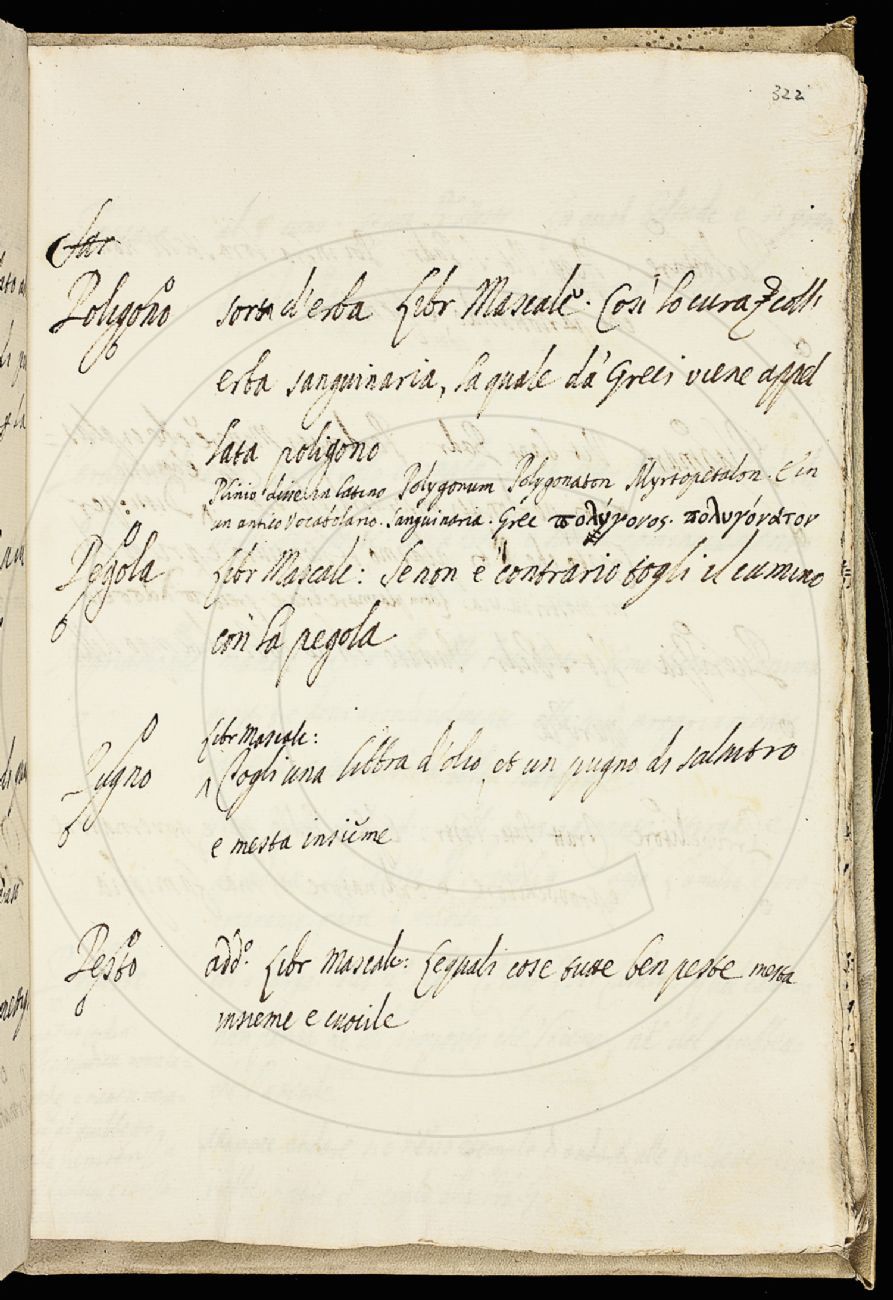 322
Poligono sorta d'erba Libr Mascalc. Così lo cura coll'
erba sanguinaria, laquale dà Greci viene appel
lata poligono
Plinio dice in latino Polygonum Polygonaton Myrtopetalon. E in
un antico Vocabolario. Sanguinaria. Grec πολύγονος. πολυγόνατον
Pegola Libr Mascale: Se non è contrario togli il cumino
con la pegola
Libr Mascalc:
Pugno Togli una libbra d'olio, et un pugno di salnitro
e mesta insieme
Pesto add.o Libr Mascalc: Lequali cose tutte ben peste mesta
insieme e cuocile